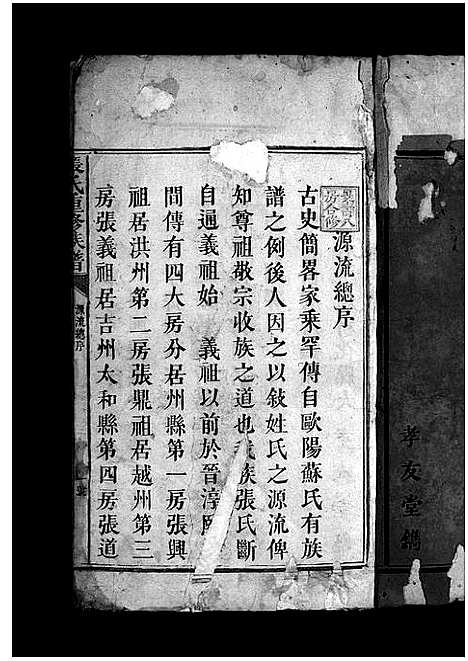 孝友堂鐫
源流總序
古史簡畧家乘罕傳自歐陽蘇氏有族
譜之例後人因之以敍姓氏之源流俾
知尊祖敬宗收族之道也我族張氏斷
自遍義祖始 義祖以前於晉淳熙
間傳有四大房分居州縣第一房張興
祖居洪州第二房張鼎祖居越州第三
房張義祖居吉州太和縣第四房張道
張氏重修族譜 源流總序